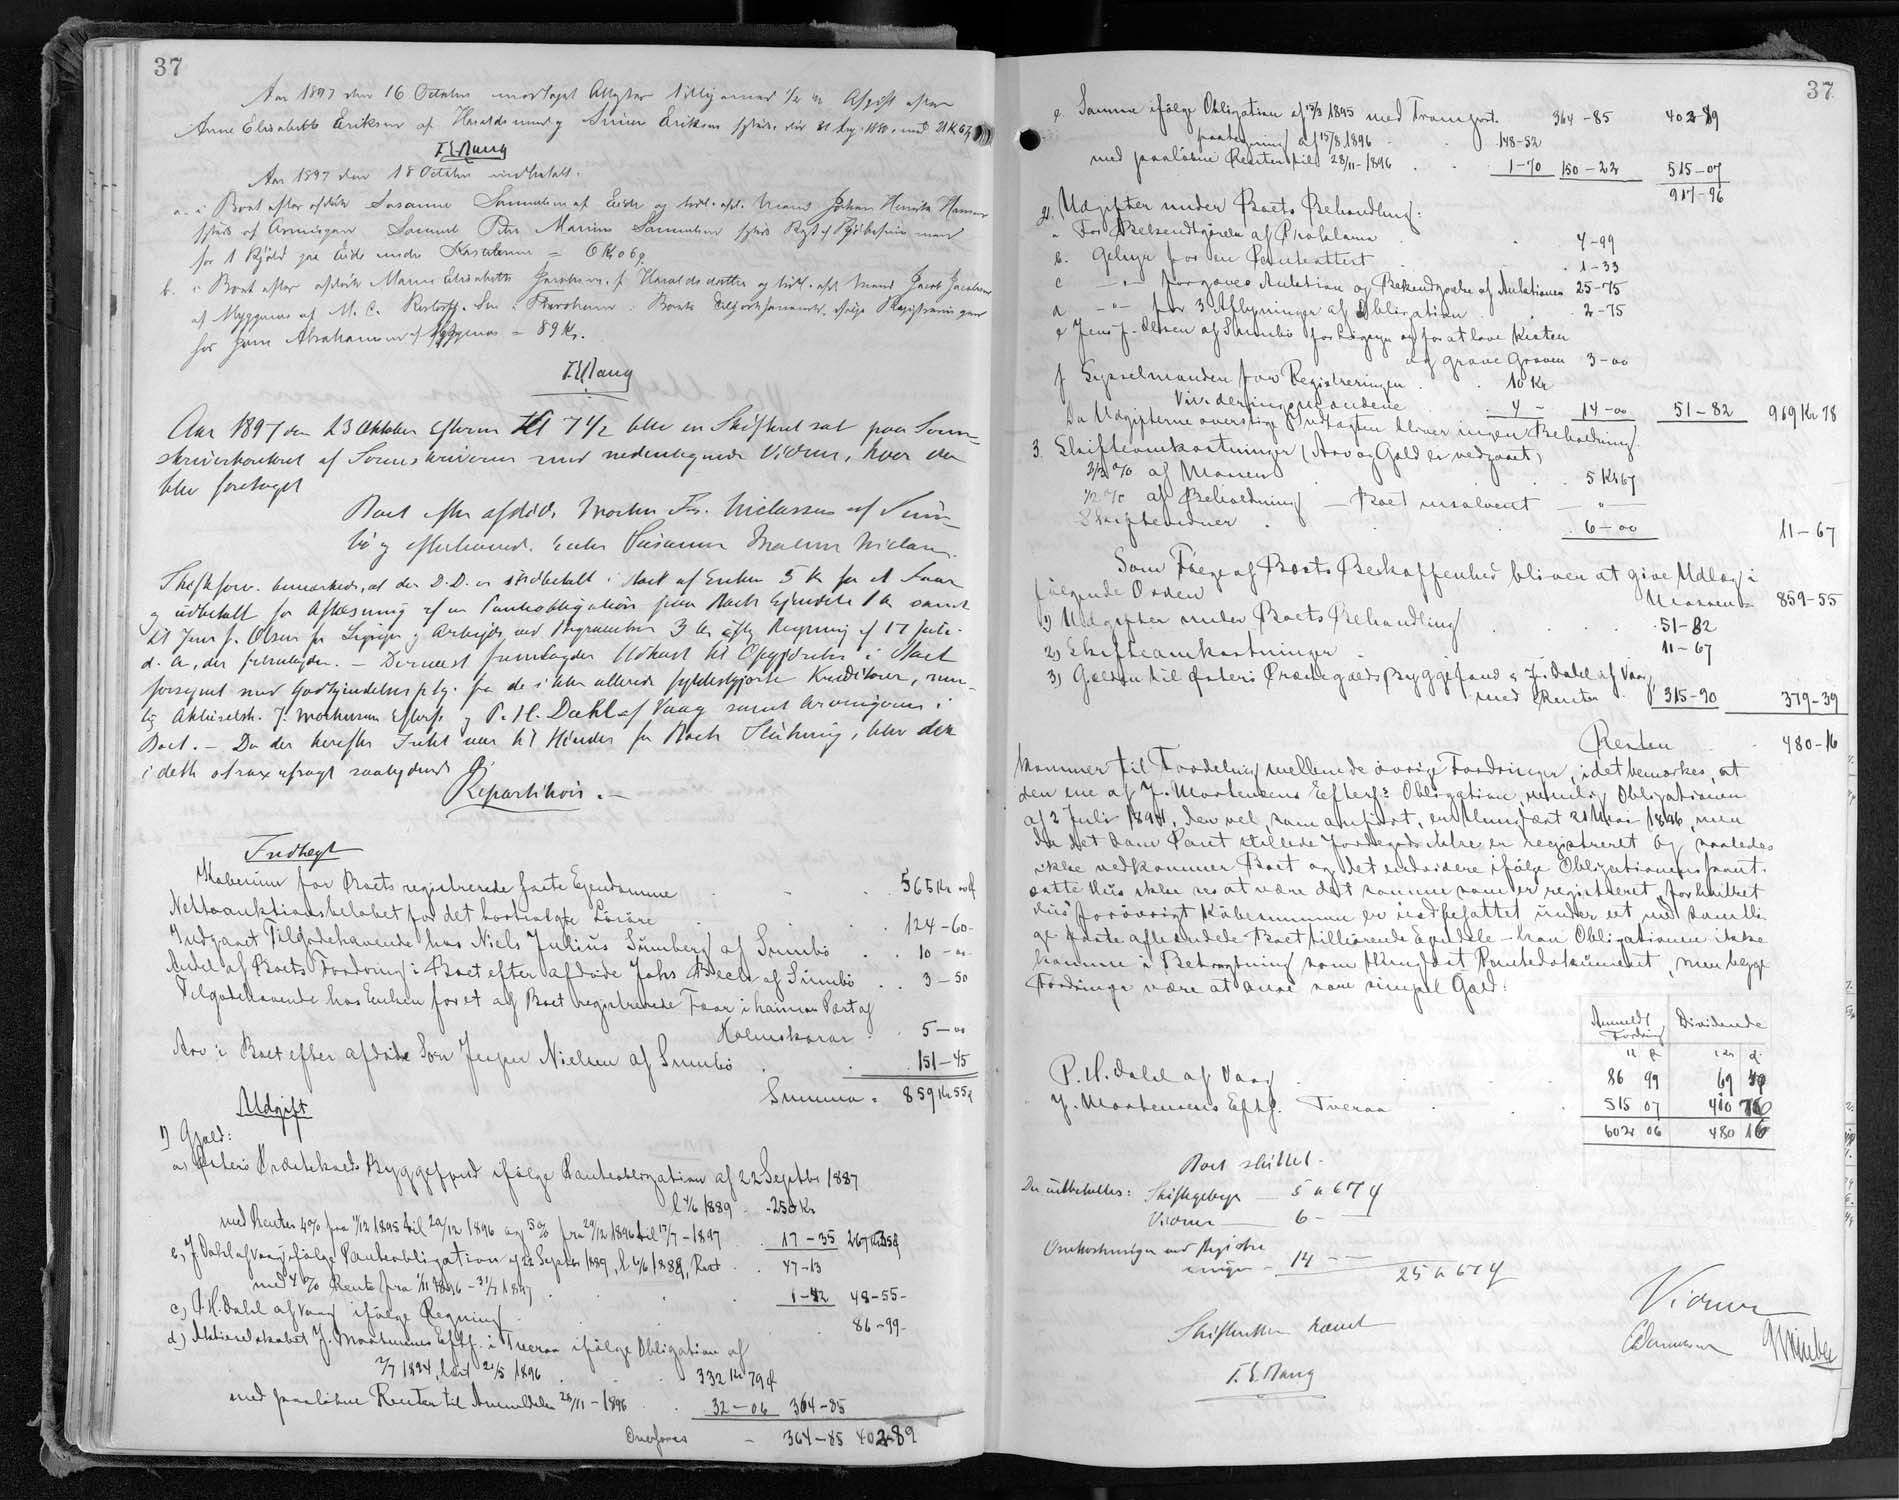 37
Aar 1897 den 16 October modtaget Afgift efter
Anne Elisabeth Eriksen af Haraldsund og
T.E. Maug
Aar 1897 den 18 October indbetalt.
a. i Boet efter afdøde Susanne Samuelsen af Eide og
Samuel Peter Marius Samuelsen
b. i Boet efter afdøde Maren Elisabeth Jacobsen f. Haraldsdatter og
af Myggenæs af M. C.
hos Jens Abrahamsen af Myggenæs = 89 Kr.
T.E. Maug
Aar 1897 den 23 Oktober Efterm Kl 7 1/2 blev en Skifteret sat paa Soren-
skriverkontoret af Sorenskriveren med nedentegnede Vidner, hvor da
blev foretaget
Boet efter afdøde Morten Fr. Niclassen af Sum-
bø og efterlevend. Enke Susanne Malene Niclasen.
Skifteforv. bemærkede, at der D.D. er indbetalt i Boet af Enken 5 Kr for et Faar
og udbetalt for Aflæsning af en Panteobligation paa Boets Ejendele 1 Kr samt
til Jens J. Olsen for Ligsyn og Arbejde ved Begravelsen 3 Kr efter Regning af 17 Juli
d. A., der fremlagdes. — Dernæst fremlagdes Udkast til Opgjørelse i Boet
forsynet med Godkjendelsespaategn. fra de ikke allerede fyldestgjorte Kreditorer, nem-
lig Aktieselsk. J. Mortensens Efterf. og P. H. Dahl af Vaag samt Arvingerne i
Boet. — Da der herefter Intet var til Hinder for Boets Slutning, blev dette
i dette strax afsagt saalydende
Repartition. —
Indtægt
Købesum for Boets registrerede faste Ejendomme 565 Kr 00 Ø
Nettoauktionsbeløbet for det bortsolgte Løsøre 124 - 60 -
Indgaaet Tilgodehavende hos Niels Julius Sumberg af Sumbø 10 - 00
Andel af Boets Fordring i Boet efter afdøde Johs Bech af Sumbø 3 - 50
Tilgodehavende hos Enken for et af Boet registrerede Faar i hannes Part af
Holmskorar 5 - 00
Arv i Boet efter afdøde Søn Jesper Nielsen af Sumbø 151 - 45
Summa = 859 Kr 55 Ø
Udgift
1) Gjæld:
a) Østerø Præstekalds Byggefond ifølge Panteobligation af 22 Septbr 1887
l. 4/6 1889 - 250 Kr
med Renter 4% fra 11/12 1895 til 29/12 1896 og 5% fra 29/12 1896 til 17/7 - 1897 17 - 35 267 Kr 35 Ø
b) J. Dahl af Vaag ifølge Panteobligation af 22 Septbr 1889, l. 4/6 1888, Rest 47 - 13
med 4% Rente fra 1/11 1896 - 31/7 1897 1 - 42 48 - 55 -
c) P. H. Dahl af Vaag ifølge Regning 86 - 99 -
d) Aktieselskabet J. Mortensens Eftf. i Tveraa ifølge Obligation af
2/7 1894, læst 21/5 1896 332 Kr 79 Ø
med paaløbne Renter til Anmeldelsen 28/11 - 1896 32 - 06 364 - 85
Overføres - 364 - 85 402 - 89
37
e. Samme ifølge Obligation af 15/3 1895 med Transport. 364 - 85 402 - 89
paategning af 15/8 1896 148 - 52
med paaløbne Renter til 28/11 - 1896 1 - 70 150 - 22 515 - 07
917 - 96
2. Udgifter under Boets Behandling:
a. For Bekendtgørelse af Proklama 4 - 99
b. Gebyr for en Panteattest 1 - 33
c. - " - forgæves Auktion og Bekendtgørelse af Auktionen 25 - 75
d. - " - for 3 Aflysninger af Obligation 2 - 75
e. Jens J. Olsen af Sumbø for Ligsyn og for at lave Kisten
og grave Graven 3 - 00
f. Sysselmanden for Registreringen 10 Kr
Vurderingsmændene 4 - 14 - 00 51 - 82 969 Kr 78
Da Udgifterne overstige Indtægten bliver ingen Beholdning.
3. Skifteomkostninger (Arv og Gæld er vedgaaet)
2/3 % af Massen 5 Kr 67
1/2 % af Beholdning — Boet insolvent — " —
Skiftevidner 6 - 00 11 - 67
Som Følge af Boets Beskaffenhed bliver at give Udlæg i
følgende Orden Massen = 859 - 55
1) Udgifter under Boets Behandling 51 - 82
2) Skifteomkostninger 11 - 67
3) Gælden til Østerø Præstegælds Byggefond & J. Dahl af Vaag
med Renter 315 - 90 379 - 39
Resten 480 - 16
kommer til Fordeling mellem de øvrige Fordringer, idet bemærkes, at
den ene af J. Mortensens Efterfs Obligation, nemlig Obligationen
af 2 Juli 1894, den vel, som anført, er thinglæst 21 Mai 1896, men
da det som Pant stillede Jordegods ikke er registreret og saaledes
ikke vedkommer Boet og det endvidere ifølge Obligationens pant-
satte Hus ikke ses at være det samme som er registreret, for hvilket
Hus forøvrigt Købesummen er indbefattet under et med samtli-
ge faste afhændede Boet tilhørende Ejendele — kan Obligationen ikke
komme i Betragtning som thinglæst Pantedokument, men begge
Fordringer være at anse som simpel Gæld:
Anmeldt Fordring Dividende
Kr Ø Kr Ø
P. H. Dahl af Vaag 86 99 69 40
J. Mortensens Eftf. Tveraa 515 07 410 76
602 06 480 16
Boet sluttet.
Der udbetaltes: Skiftegebyr — 5 Kr 67 Ø
Vidner — 6 - —
Omkostninger ved Registre
ringen - 14 - —
25 Kr 67 Ø
Skifteretten hævet
T.E. Maug
Vidner